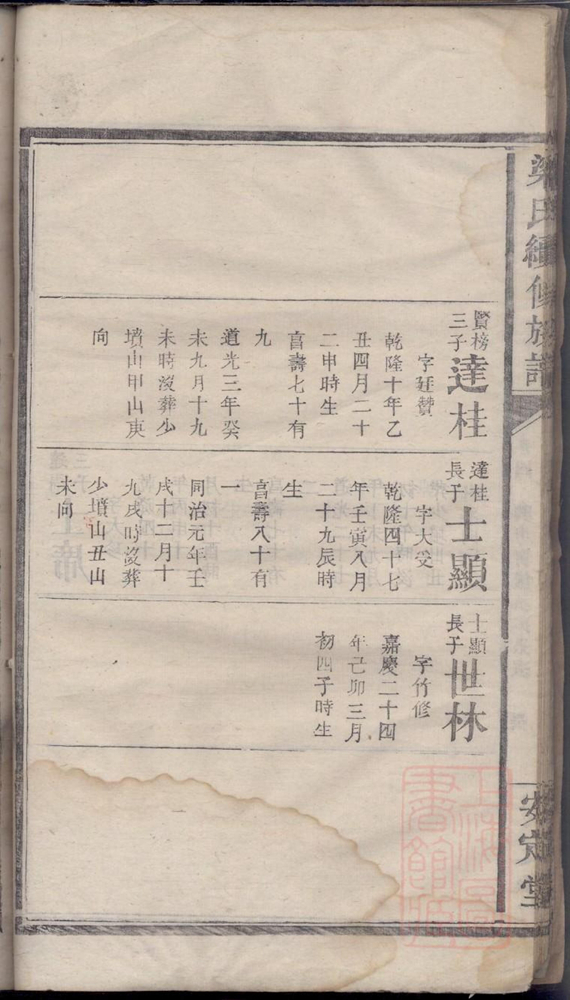 梁氏續修族譜
安定堂
賢榜
三子
達桂
字廷贊
乾隆十年乙
丑四月二十
二申時生
享壽七十有
九
道光三年癸
未九月十九
未時歿葬少
墳山甲山庚
向
達桂
長子
士顯
字大受
乾隆四十七
年壬寅八月
二十九辰時
生
享壽八十有
一
同治元年壬
戌十二月十
九戌時歿葬
少墳山丑山
未向
士顯
長子
世林
字竹修
嘉慶二十四
年己卯三月
初四子時生